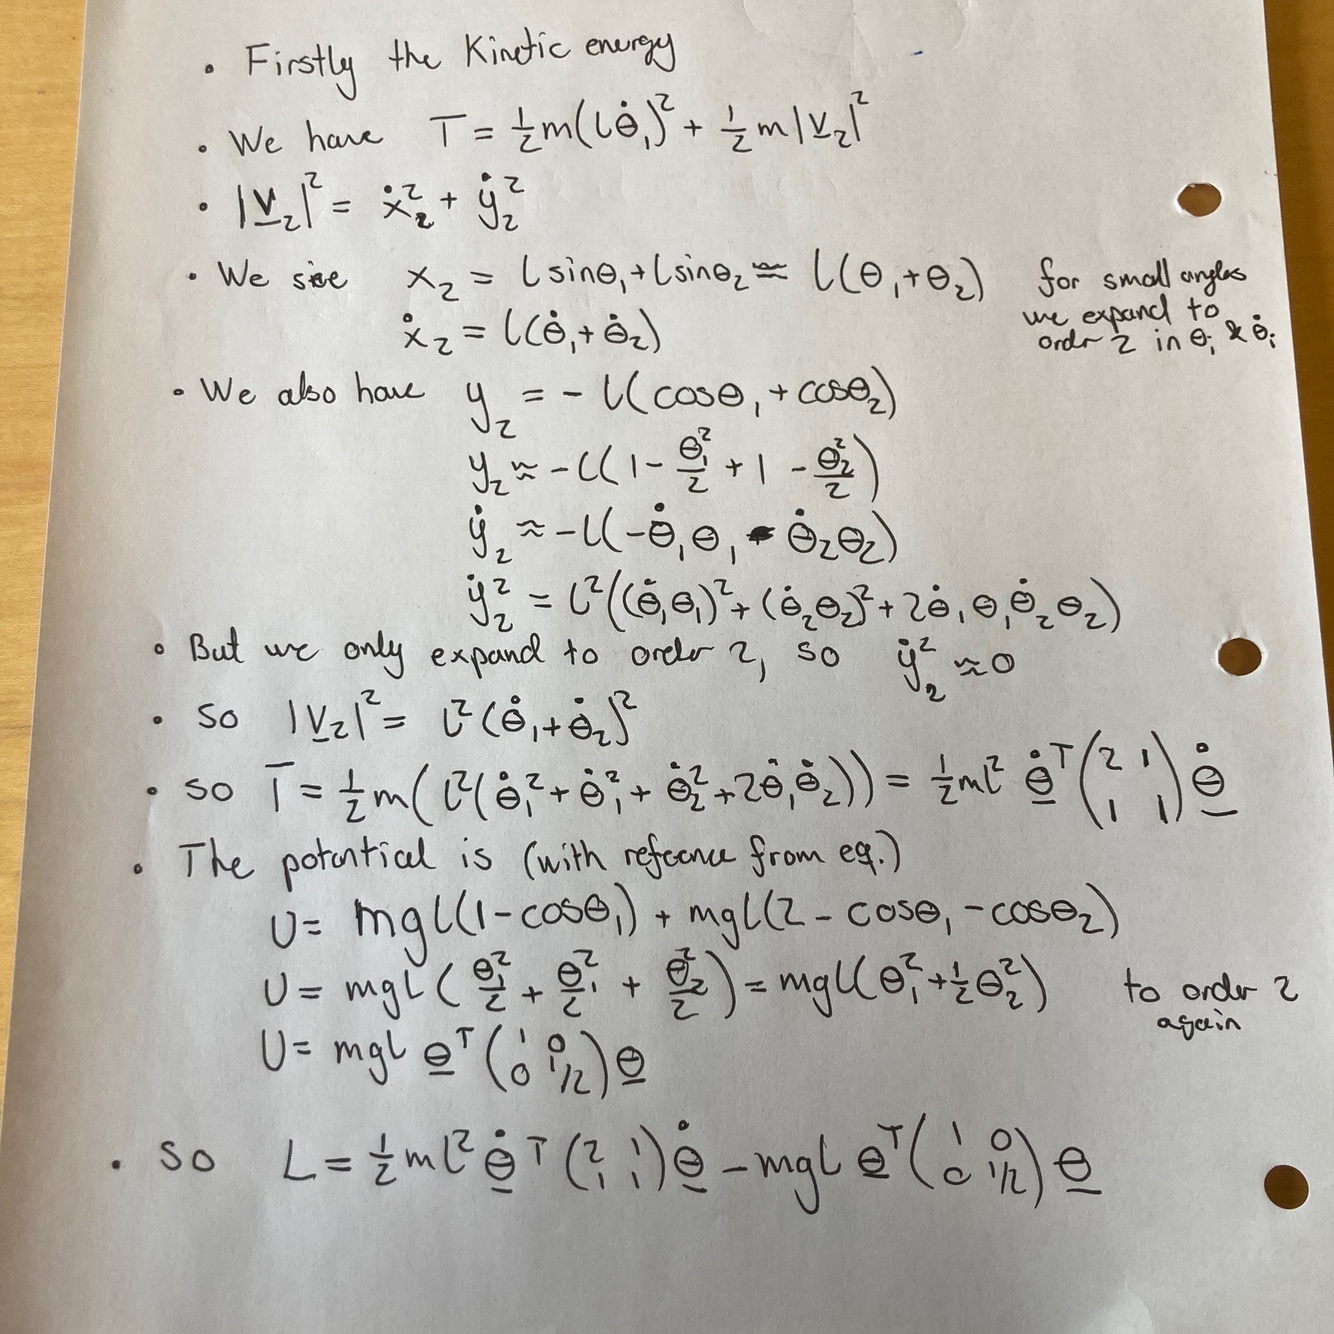 • Firstly the Kinetic energy
• We have T = ½m(lθ̇₁)² + ½m|v̲₂|²
• |v̲₂|² = ẋ₂² + ẏ₂²
• We see x₂ = l sinθ₁ + l sinθ₂ ≈ l(θ₁+θ₂) for small angles
we expand to
order 2 in θᵢ & θ̇ᵢ
ẋ₂ = l(θ̇₁+θ̇₂)
• We also have y₂ = - l(cosθ₁ + cosθ₂)
y₂ ≈ -l(1 - θ₁²/2 + 1 - θ₂²/2)
ẏ₂ ≈ -l(-θ̇₁θ₁ - θ̇₂θ₂)
ẏ₂² = l²((θ̇₁θ₁)² + (θ̇₂θ₂)² + 2θ̇₁θ₁θ̇₂θ₂)
• But we only expand to order 2, so ẏ₂² ≈ 0
• so |v̲₂|² = l²(θ̇₁+θ̇₂)²
• so T = ½m(l²(θ̇₁² + θ̇₁² + θ̇₂² + 2θ̇₁θ̇₂)) = ½ml² θ̲̇ᵀ(2 1; 1 1)θ̲̇
• The potential is (with refernce from eq.)
U = mgl(1-cosθ₁) + mgl(2 - cosθ₁ - cosθ₂)
U = mgl(θ₁²/2 + θ₁²/2 + θ₂²/2) = mgl(θ₁² + ½θ₂²) to order 2
again
U = mgl θ̲ᵀ(1 0; 0 1/2)θ̲
• so L = ½ml² θ̲̇ᵀ(2 1; 1 1)θ̲̇ - mgl θ̲ᵀ(1 0; 0 1/2)θ̲